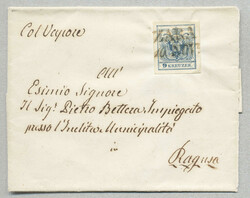 Col Vapore
All'
Esimio Signore
Il Sigr Pietro Bettera Impiegato
presso l'Inclita Municipalità
in
Ragusa
9 KREUZER